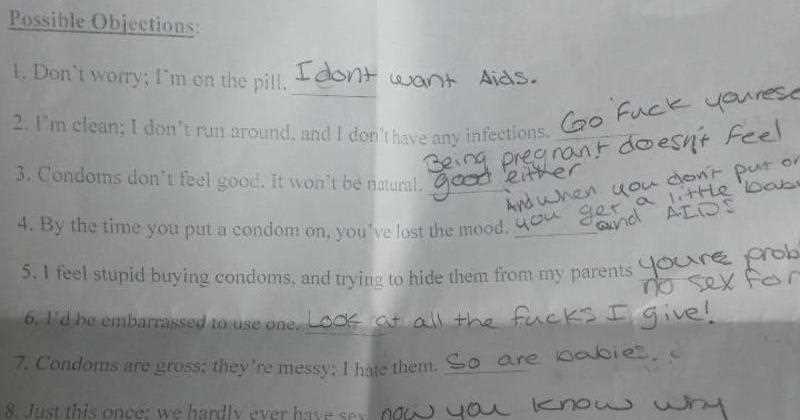 Possible Objections:
1. Don't worry; I'm on the pill. I dont want Aids.
2. I'm clean; I don't run around, and I don't have any infections. Go Fuck
3. Condoms don't feel good. It won't be natural. Being pregnant doesn't feel
good either
4. By the time you put a condom on, you've lost the mood. And when you don't put
you get a little
and AIDS
5. I feel stupid buying condoms, and trying to hide them from my parents youre
no sex for
6. I'd be embarrassed to use one. Look at all the fucks I give!
7. Condoms are gross; they're messy; I hate them. So are babies.
8. Just this once; we hardly ever have sex now you know why